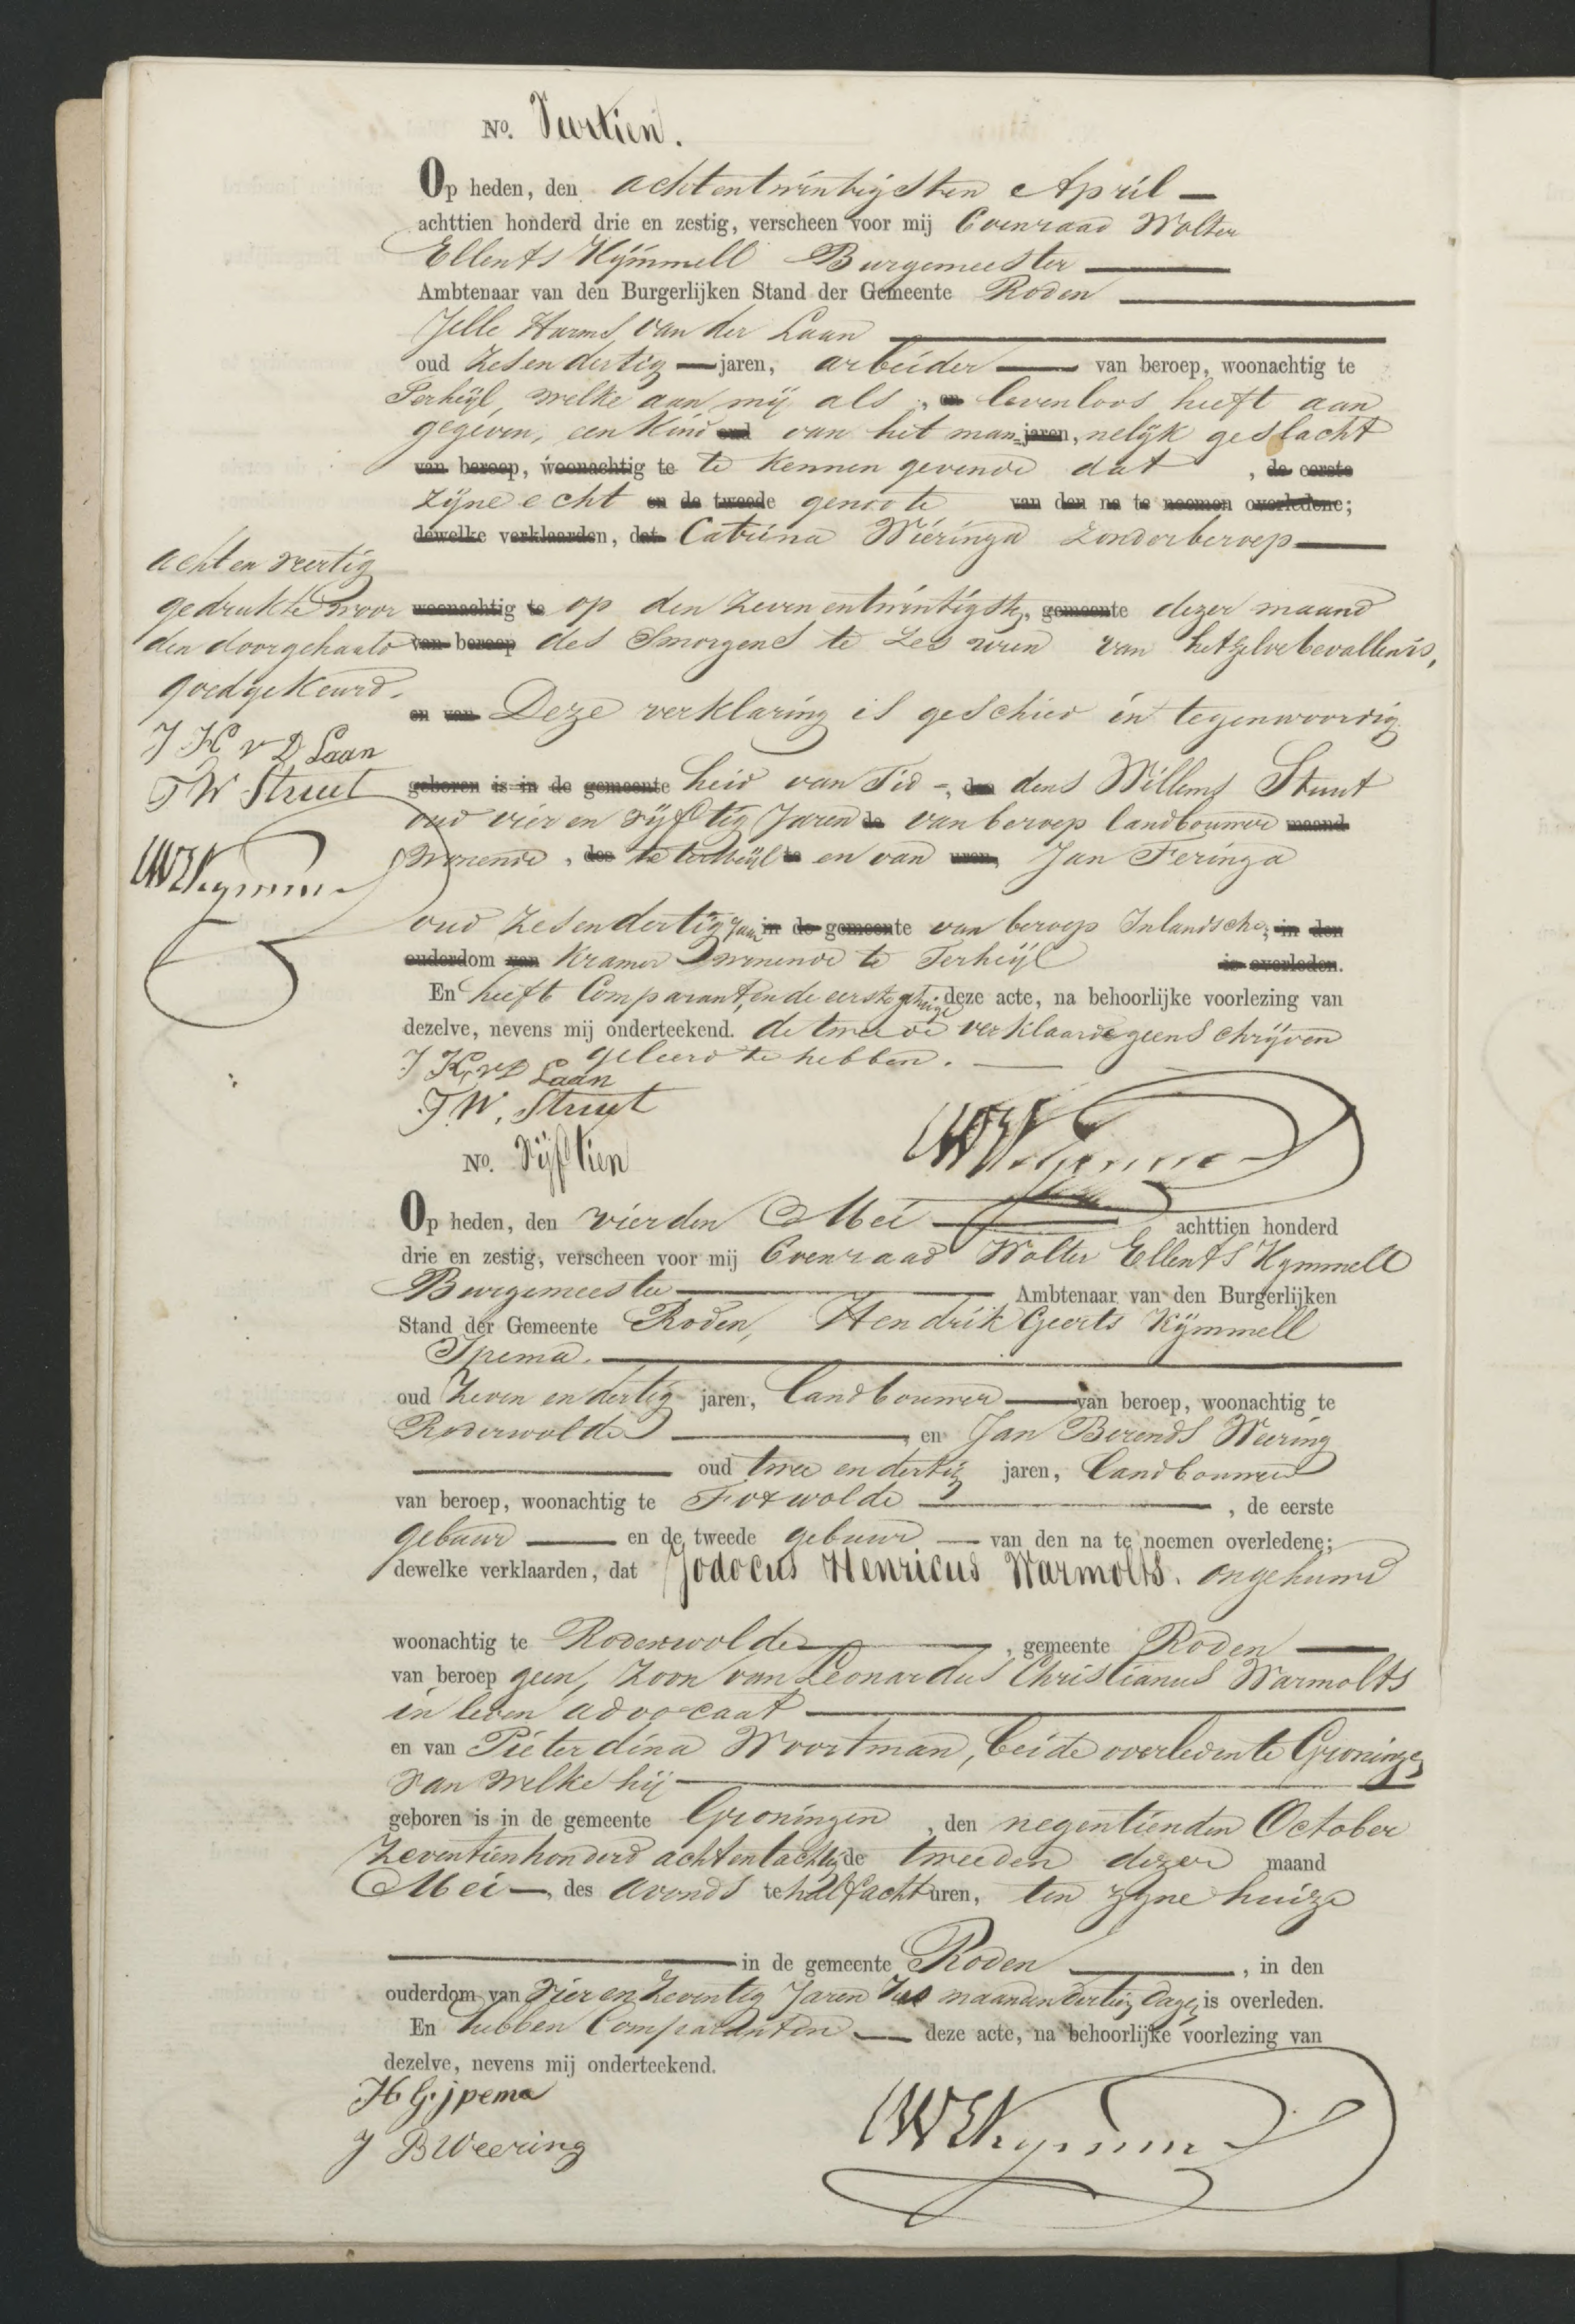 No. Veertien.
Op heden, den achtentwintigsten April —
achttien honderd drie en zestig, verscheen voor mij Coenraad Wolter
Ellents Kymmell Burgemeester —
Ambtenaar van den Burgerlijken Stand der Gemeente Roden —
Jelle Harms van der Laan —
oud Zesendertig — jaren, arbeider — van beroep, woonachtig te
Terheijl, welke aan mij als, en levenloos heeft aan
gegeven, een Kind oud van het man-jaren, nelijk geslacht
van beroep, woonachtig te te kennen gevende dat , de eerste
Zijne echt en de tweede genoote van den na te noemen overledene;
dewelke verklaarden, dat Catrina Wieringa Zonder beroep —
woonachtig te op den Zeven entwintigste, gemeente dezer maand
van beroep des Smorgens te Zes uren van hetzelve bevallen is,
en van Deze verklaring is geschied in tegenwoordig
geboren is in de gemeente heid van Tid -, den dens Willems Struut
oud vier en vijftig Jaren de van beroep landbouwer maand
wonende, des te terheijl te en van uren, Jan Feringa
oud Zesendertig Jaar in de gemeente van beroep Inlandsche, in den
ouderdom van Kramer wonende te Terheijl is overleden.
En heeft Comparant, en de eerste getuige deze acte, na behoorlijke voorlezing van
dezelve, nevens mij onderteekend. de tweede verklaarde geen Schrijven
geleerd te hebben. —
J H v D Laan
T. W. Struut
CWEKymmell
acht en veertig
gedrukte woor
den doorgehaald
goedgekeurd.
J H v D Laan
T W Struut
CWEKymmell
No. Vijftien
Op heden, den vierden Mei — achttien honderd
drie en zestig, verscheen voor mij Coenraad Wolter Ellents Kymmell
Burgemeester — Ambtenaar van den Burgerlijken
Stand der Gemeente Roden, Hendrik Geerts Kijmmell
Ipema. —
oud Zeven en dertig jaren, Landbouwer — van beroep, woonachtig te
Roderwolde —, en Jan Berends Weering
— oud twee en dertig jaren, Landbouwer
van beroep, woonachtig te Foxwolde —, de eerste
gebuur — en de tweede gebuur — van den na te noemen overledene;
dewelke verklaarden, dat Jodocus Henricus Warmolts. ongehuwd
woonachtig te Roderwolde —, gemeente Roden —
van beroep geen, Zoon van Leonardus Christianus Warmolts
in leven advocaat —
en van Pieterdina Woortman, beide overleden te Groningen
van welke hij —
geboren is in de gemeente Groningen, den negentienden October
Zeventienhonderd achtentachtig de tweeden dezer maand
Mei —, des avonds te half acht uren, ten zijne huize
— in de gemeente Roden —, in den
ouderdom van vier en Zeventig Jaren Zes maanden dertien dagen is overleden.
En hebben Comparanten — deze acte, na behoorlijke voorlezing van
dezelve, nevens mij onderteekend.
H G jpema
J B Weering
CWEKymmell